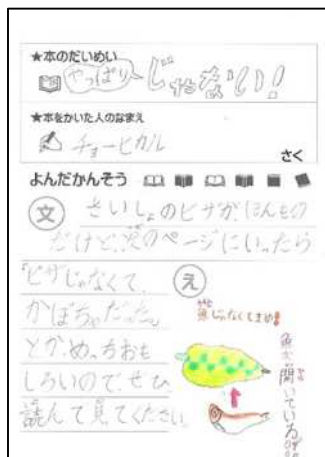 ★本のだいめい
やっぱりじゃない!
★本をかいた人のなまえ
チョーヒカル
さく
よんだかんそう
文
さいしょのピザが、ほんもの
だけど、次のページにいったら
「ピザじゃなくて、
かぼちゃだった」
とか、めっちおも
しろいので、ぜひ
読んで見てください。
え
魚じゃなくまめ!
魚が開いている